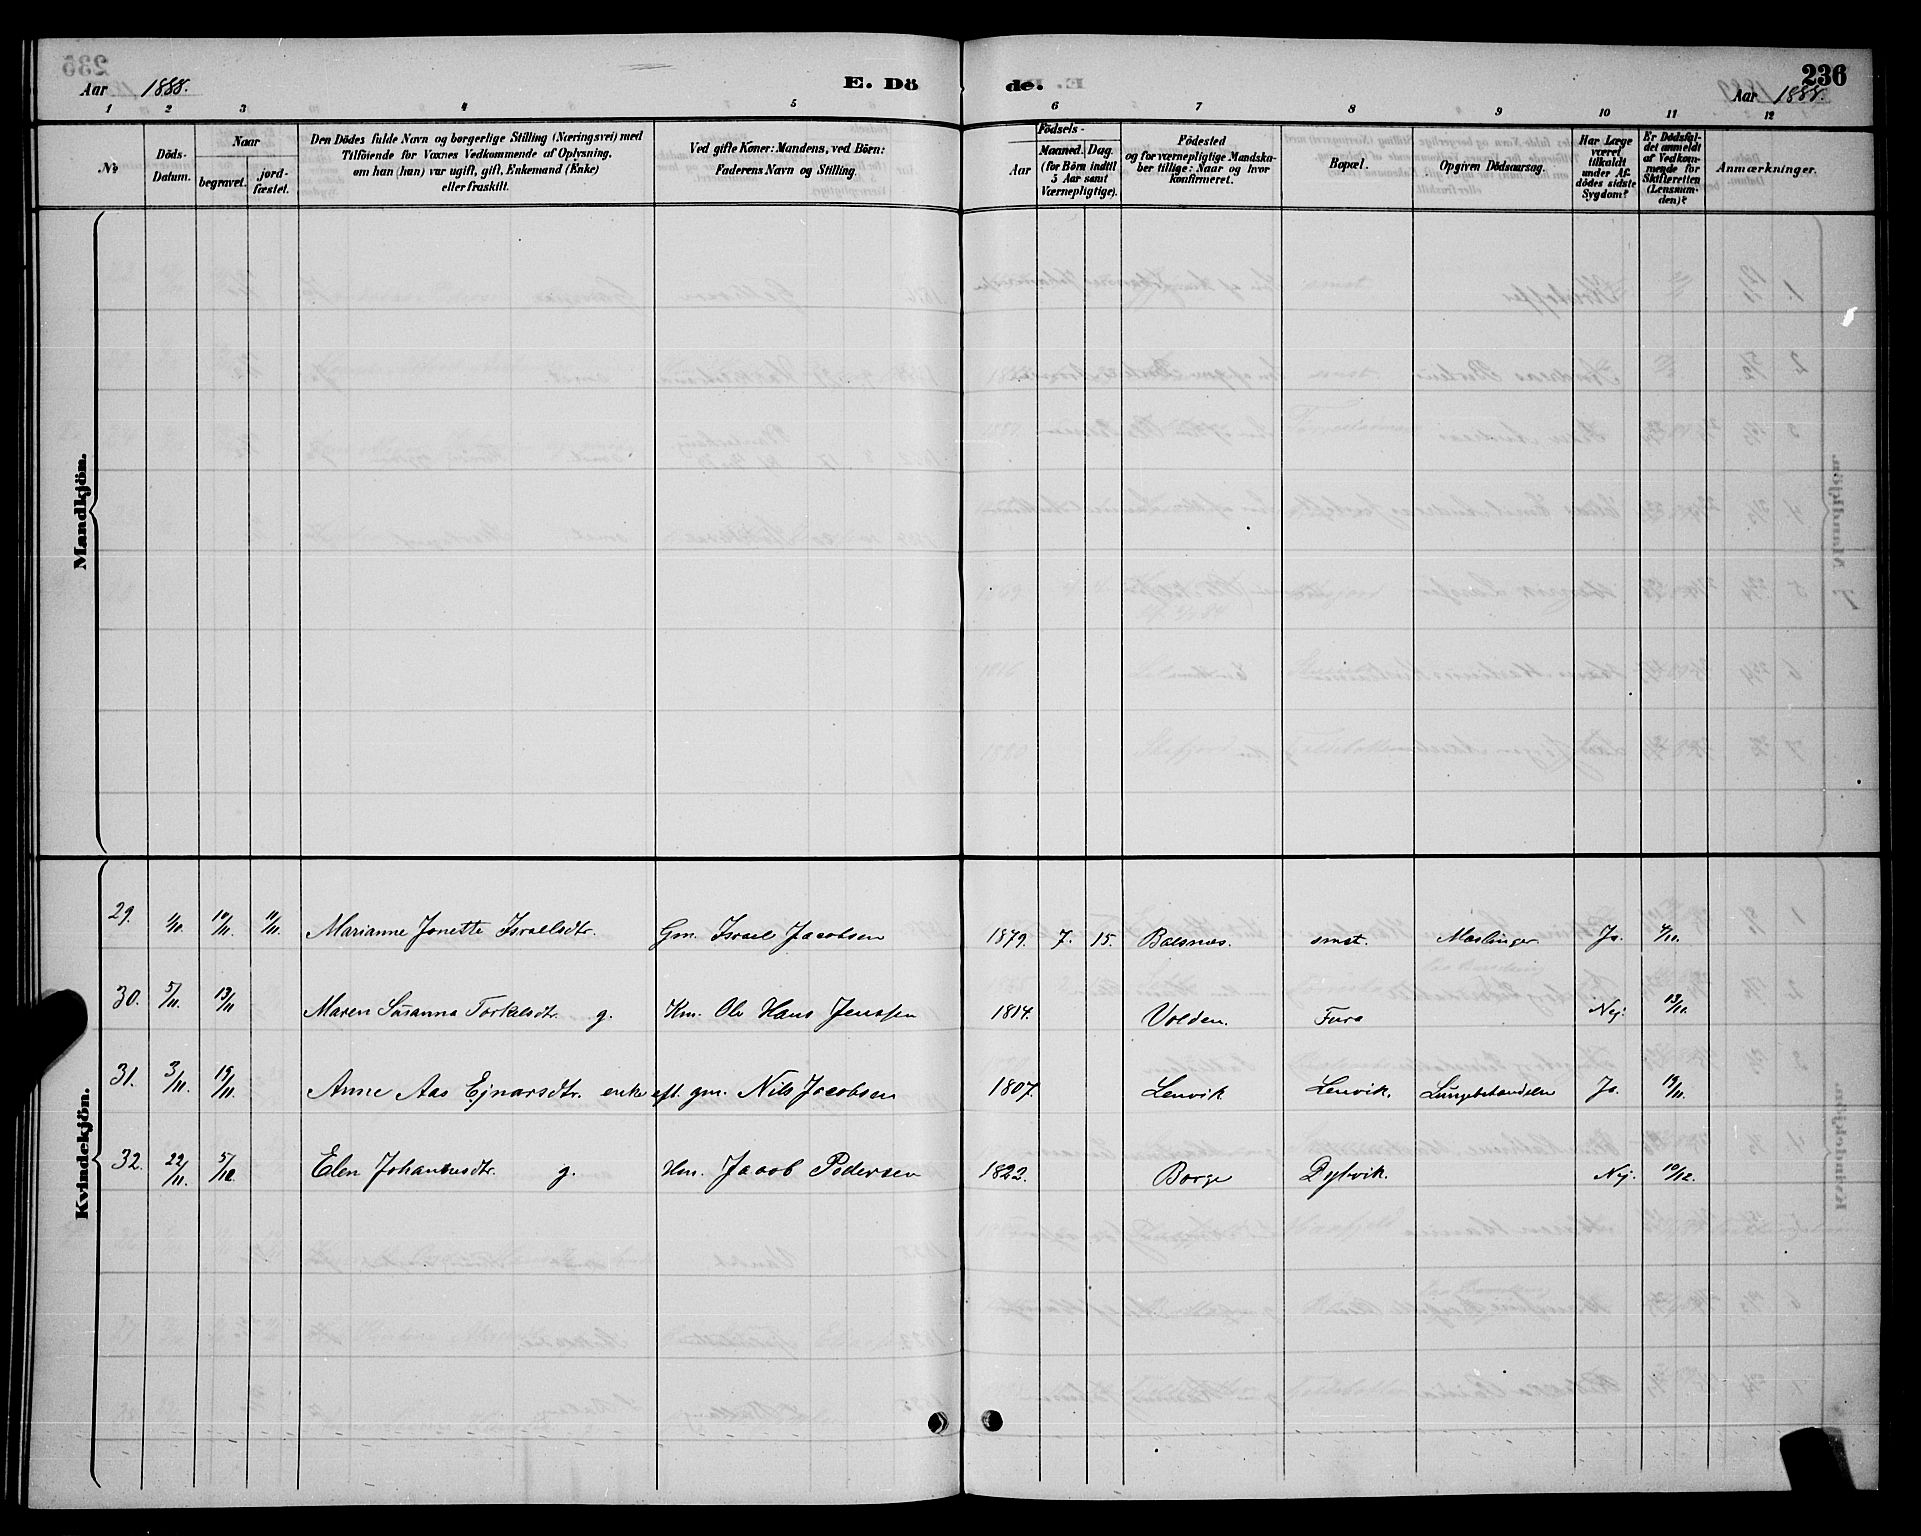 236
Aar 1888.
E. Dö
de.
Aar 1888.
1 2 3 4 5 6 7 8 9 10 11 12
№
Döds-
Datum.
Naar
begravet.
jord-
fæstet.
Den Dödes fulde Navn og borgerlige Stilling (Næringsvei) med
Tilföiende for Voxnes Vedkommende af Oplysning,
om han (hun) var ugift, gift, Enkemand (Enke)
eller fraskilt.
Ved gifte Koner: Mandens, ved Börn:
Faderens Navn og Stilling.
Födsels-
Aar
Maaned. Dag.
(for Börn indtil
5 Aar samt
Værnepligtige).
Födested
og for værnepligtige Mandska-
ber tillige: Naar og hvor
konfirmeret.
Bopæl.
Opgiven Dödsaarsag.
Har Læge
været
tilkaldt
under Af-
dödes sidste
Sygdom?
Er Dödsfal-
det anmeldt
af Vedkom-
mende for
Skifteretten
(Lensman-
den)?
Anmærkninger.
Mandkjön.
Kvindekjön.
29. 10/11. 11/11. Marianne Jonette Israelsdtr. Gm. Israel Jacobsen 1879. 7. 15. Baesnæs. smst. Mæslinger. Ja.
30. 5/11. 13/11 Maren Susanna Torkelsdtr. g. Km. Ole Hans Jenssen 1814. Volden. Fure Nej. 13/11.
31. 3/11. 19/11. Anne Aas Ejnarsdtr. enke eft. gm. Nils Jacobsen 1807. Lenvik Lenvik. Ja. 19/11.
32. 22/11. 5/12. Elen Johannesdtr. g. Hm. Jacob Pedersen 1822. Borge Dybvik. Nej. 10/12.